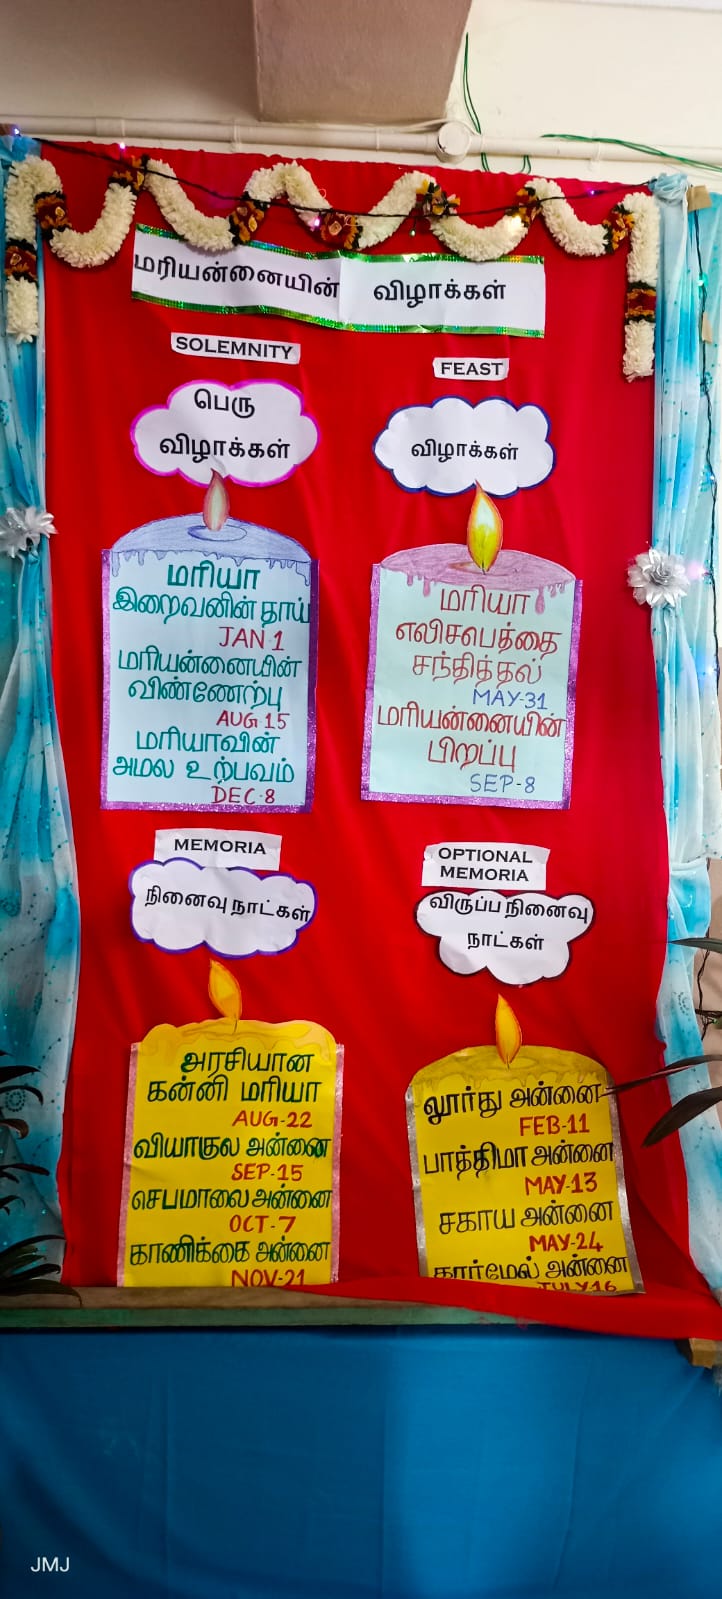 மரியன்னையின் விழாக்கள்
SOLEMNITY
பெரு
விழாக்கள்
மரியா
இறைவனின் தாய்
JAN 1
மரியன்னையின்
விண்ணேற்பு
AUG 15
மரியாவின்
அமல உற்பவம்
DEC-8
FEAST
விழாக்கள்
மரியா
எலிசபெத்தை
சந்தித்தல்
MAY-31
மரியன்னையின்
பிறப்பு
SEP-8
MEMORIA
நினைவு நாட்கள்
அரசியான
கன்னி மரியா
AUG-22
வியாகுல அன்னை
SEP-15
செபமாலை அன்னை
OCT-7
காணிக்கை அன்னை
NOV-21
OPTIONAL
MEMORIA
விருப்ப நினைவு
நாட்கள்
லூர்து அன்னை
FEB-11
பாத்திமா அன்னை
MAY-13
சகாய அன்னை
MAY-24
கார்மேல் அன்னை
JULY-16
JMJ